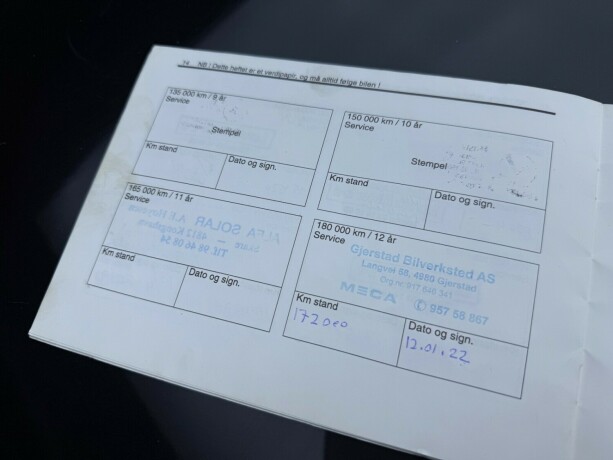 14 NB ! Dette heftet er et verdipapir, og må alltid følge bilen !
135 000 km / 9 år
Service
Stempel
Km stand
Dato og sign.
150 000 km / 10 år
Service
Stempel
Km stand
Dato og sign.
165 000 km / 11 år
Service
Km stand
Dato og sign.
180 000 km / 12 år
Service
Gjerstad Bilverksted AS
Langvei 58, 4980 Gjerstad
Org.nr. 917 646 341
MECA 957 58 867
Km stand
172000
Dato og sign.
12.01.22